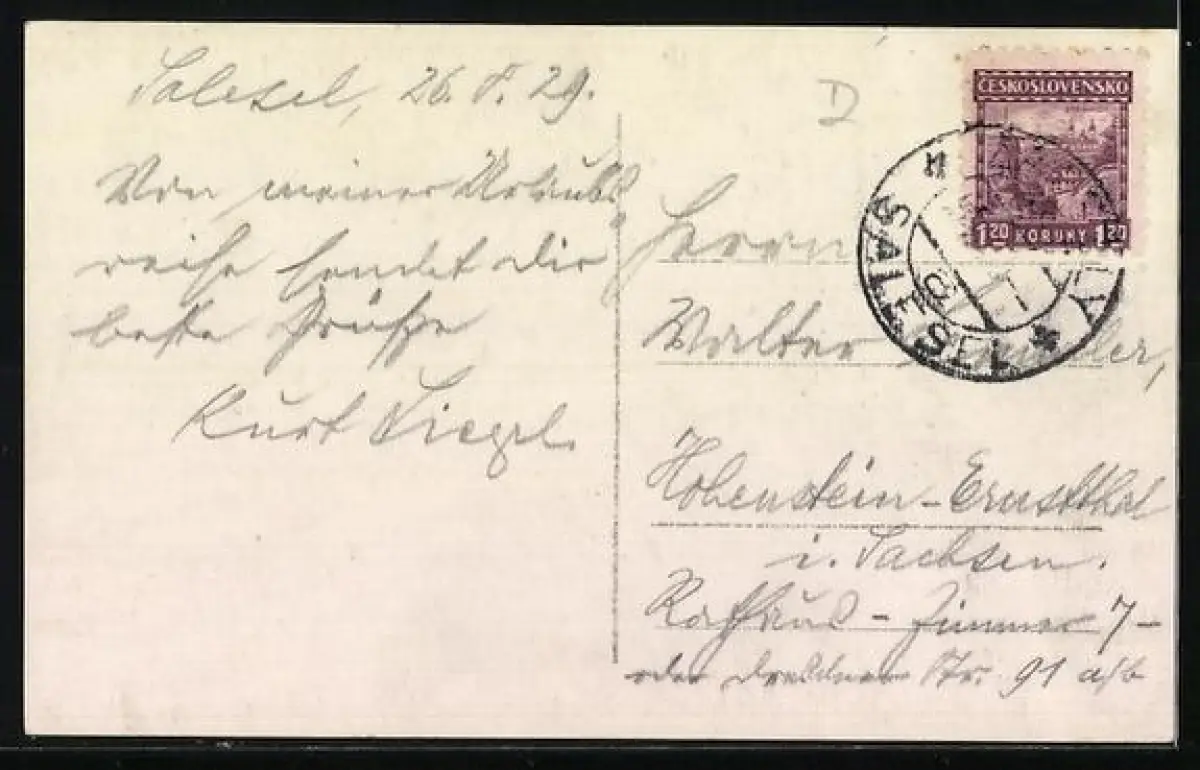 Salesel, 26. 8. 29.
Von meiner Urlaubs
reise sendet dir
beste Grüße
Kurt Siegel.
D
ČESKOSLOVENSKO
1.20 KORUNY 1.20
SALESEL
Herrn
Walter
Hohenstein-Ernstthal
i. Sachsen.
Rathaus - Zimmer 7 -
oder Dresdner Str. 91 a/b